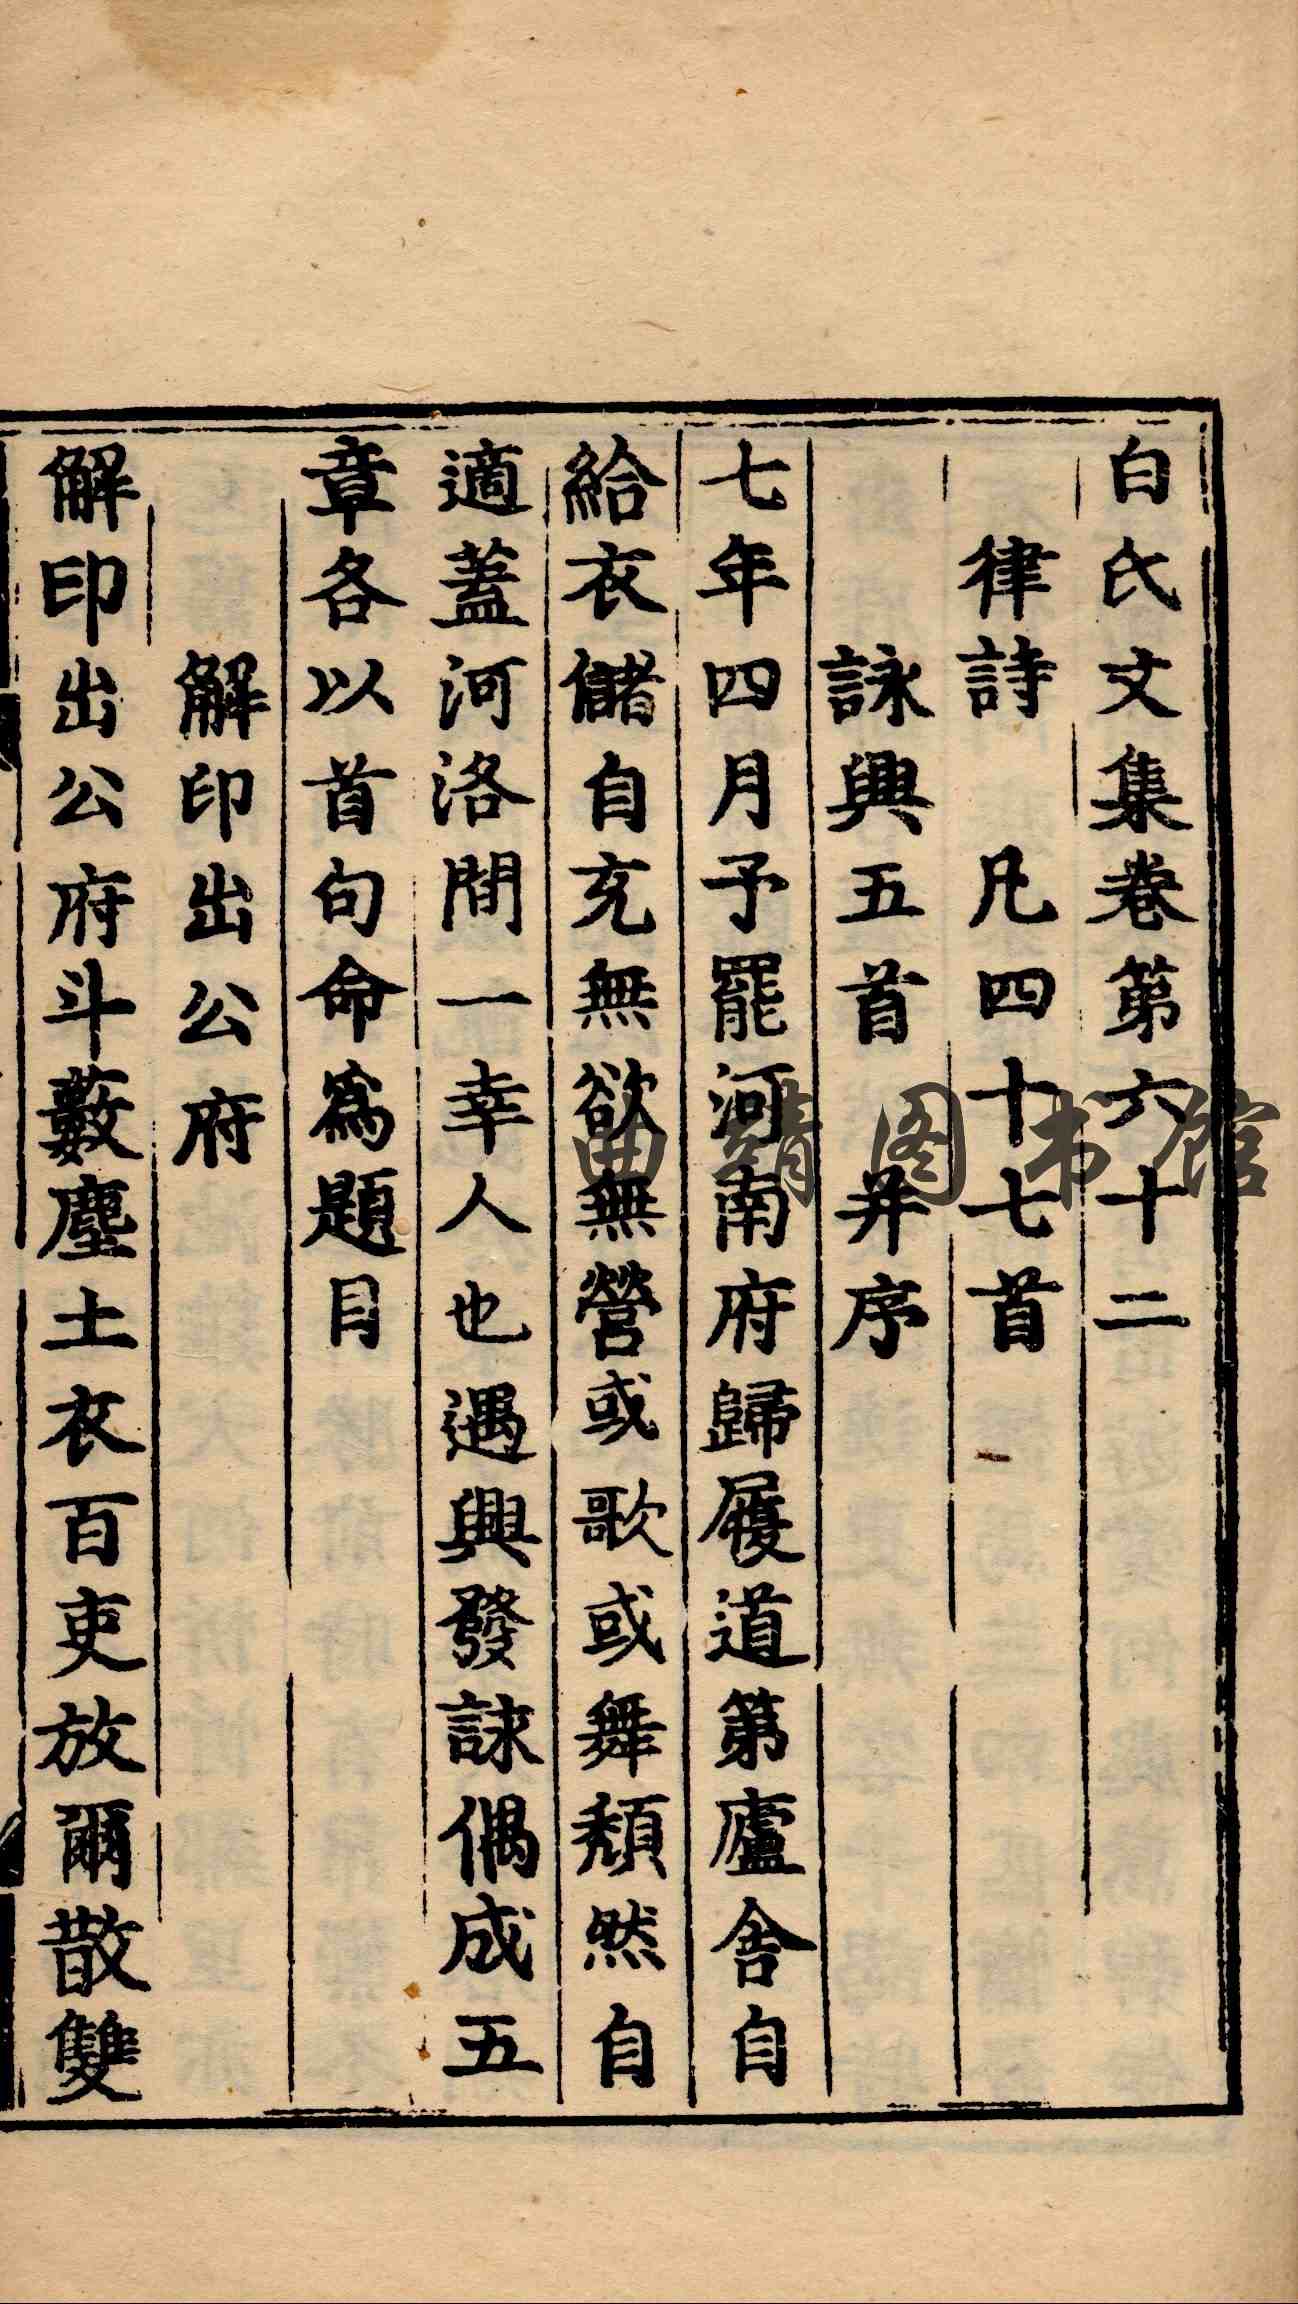 白氏文集卷第六十二
律詩　凡四十七首
詠興五首　并序
七年四月予罷河南府歸履道第廬舍自
給衣儲自充無欲無營或歌或舞頹然自
適蓋河洛間一幸人也遇興發詠偶成五
章各以首句命為題目
解印出公府
解印出公府斗藪塵土衣百吏放爾散雙
曲靖图书馆